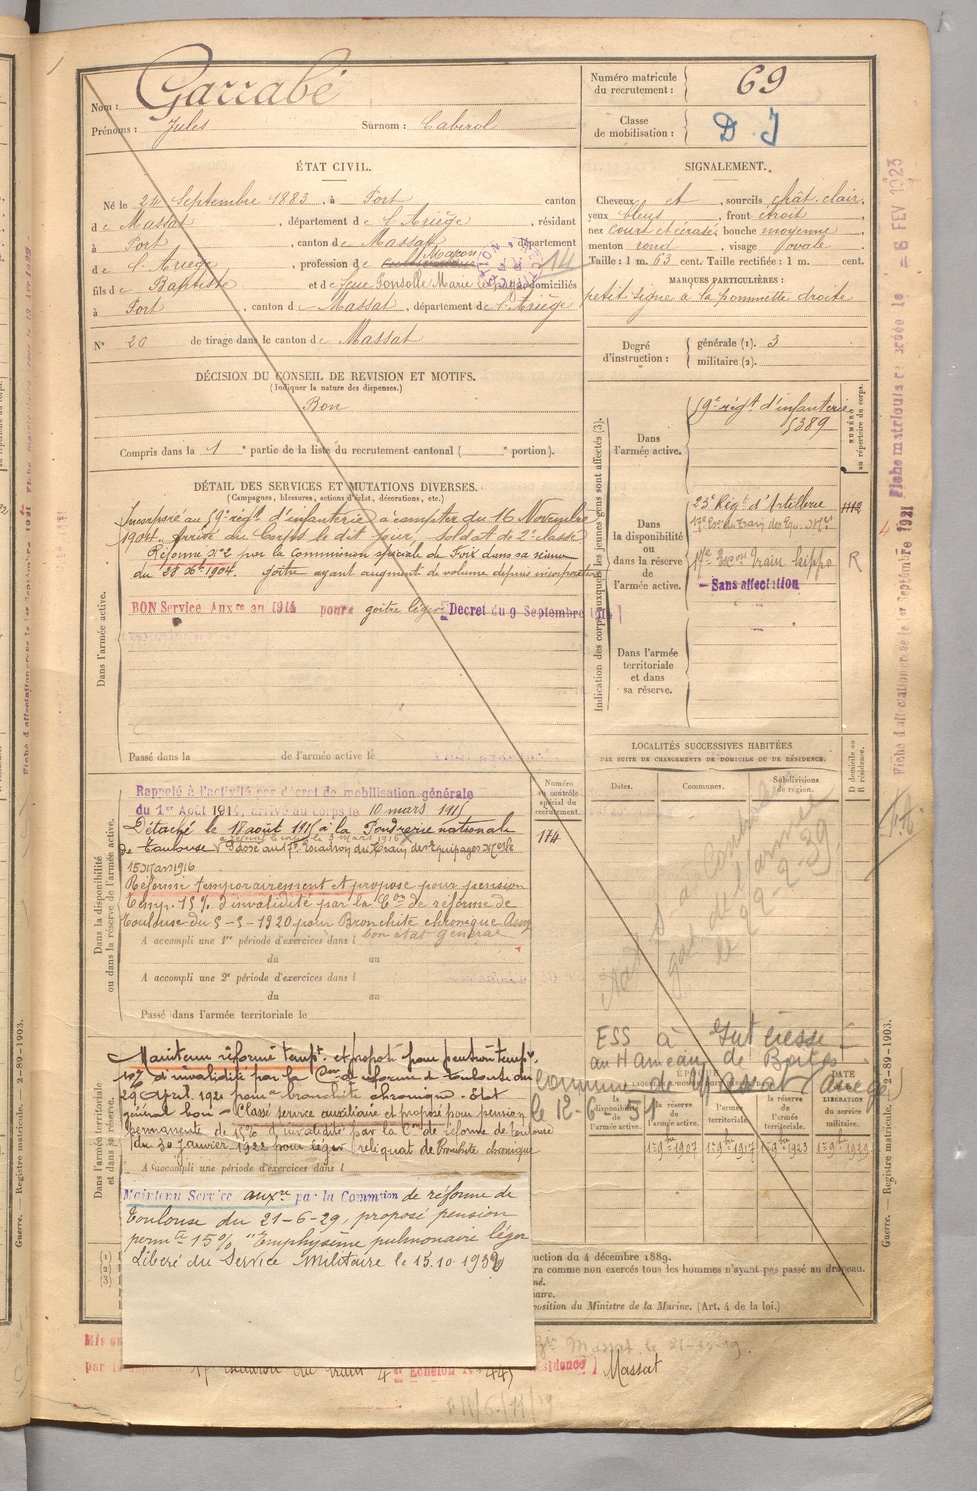 Nom : Garrabé
Prénoms : Jules Surnom : Cabirol
Numéro matricule du recrutement : 69
Classe de mobilisation : D. J
ÉTAT CIVIL.
Né le 24 Septembre 1883, à Port canton
de Massat, département de l'Ariège, résidant
à Port, canton de Massat, département
de l'Ariège, profession de Maçon
fils de Baptiste et de feue Ponsolle Marie domiciliés
à Port, canton de Massat, département de l'Ariège
N° 20 de tirage dans le canton de Massat
SIGNALEMENT.
Cheveux et, sourcils chât. clair,
yeux bleus, front étroit
nez court et écrasé, bouche moyenne
menton rond, visage ovale
Taille : 1 m. 63 cent. Taille rectifiée : 1 m. cent.
MARQUES PARTICULIÈRES :
petit signe à la pommette droite
Degré d'instruction : générale (1). 3
militaire (2).
DÉCISION DU CONSEIL DE REVISION ET MOTIFS.
(Indiquer la nature des dispenses.)
Bon
Compris dans la 1e partie de la liste du recrutement cantonal ( e portion).
DÉTAIL DES SERVICES ET MUTATIONS DIVERSES.
(Campagnes, blessures, actions d'éclat, décorations, etc.)
Dans l'armée active.
Incorporé au 59e régt d'infanterie à compter du 16 Novembre
1904. Arrivé au Corps le dit jour, soldat de 2e classe
Réformé No 2 par la Commission spéciale de Foix dans sa séance
du 28 Xbre 1904. goître ayant augmenté de volume depuis incorporation
BON Service Auxre an 1914 pour goitre léger Décret du 9 Septembre 1914
Passé dans la de l'armée active le
Indication des corps auxquels les jeunes gens sont affectés (3).
NUMÉRO au répertoire du corps.
Dans l'armée active.
59e régt d'infanterie
5389
Dans la disponibilité ou dans la réserve de l'armée active.
23e Régt d'Artillerie 1112
17e Escon du Train des Equ. Mres
17e Escon Train hippo R
Sans affectation
Dans l'armée territoriale et dans sa réserve.
LOCALITÉS SUCCESSIVES HABITÉES
PAR SUITE DE CHANGEMENTS DE DOMICILE OU DE RÉSIDENCE.
Dates. Communes. Subdivisions de région. D domicile ou R résidence.
Numéro au contrôle spécial du recrutement.
174
Dans la disponibilité ou dans la réserve de l'armée active.
Rappelé à l'activité par décret de mobilisation générale
du 1er Août 1914, arrivé au corps le 10 mars 1915
Détaché le 18 août 1915 à la Poudrerie nationale
de Toulouse. Passé au 17e Escadron du Train des Equipages Mres le
15 Mars 1916
Réformé temporairement et proposé pour pension
temp. 15% d'invalidité par la Con de réforme de
Toulouse du 5-5-1920 pour Bronchite chronique Assez
bon état général
A accompli une 1re période d'exercices dans l
du au
A accompli une 2e période d'exercices dans l
du au
Passé dans l'armée territoriale le
Dans l'armée territoriale et dans sa réserve.
Maintenu réformé tempt. et proposé pour pension tempre.
10% d'invalidité par la Con de réforme de Toulouse du
29 Avril 1921 pour bronchite chronique. État
général bon - Classé service auxiliaire et proposé pour pension
permanente de 15% d'invalidité par la Con de réforme de Toulouse
du 30 Janvier 1922 pour léger reliquat de Bronchite chronique
A accompli une période d'exercices dans l
Maintenu Service auxre par la Commtion de réforme de
Toulouse du 21-6-29, proposé pension
permte 15% "Emphysème pulmonaire léger
Libéré du Service Militaire le 15.10 1932
ESS à
au Hameau de
commune de Massat (Ariège)
le 12-6-51
DATE DE LA LIBÉRATION du service militaire.
la disponibilité de l'armée active.
la réserve de l'armée active.
l'armée territoriale.
la réserve de l'armée territoriale.
1er 9bre 1907 1er 9bre 1917 1er 9bre 1923 1er 9bre 1929
uction du 4 décembre 1889.
ra comme non exercés tous les hommes n'ayant pas passé au drapeau.
né.
aire.
position du Ministre de la Marine. (Art. 4 de la loi.)
Massat, le
17e escadron du train 4er Echelon
résidence) Massat
Guerre. — Registre matricule. — 2-89-1903.
Fiche matricule créée le 6 FEV 1923
Fiche d'affectation créée le 1er Septembre 1921